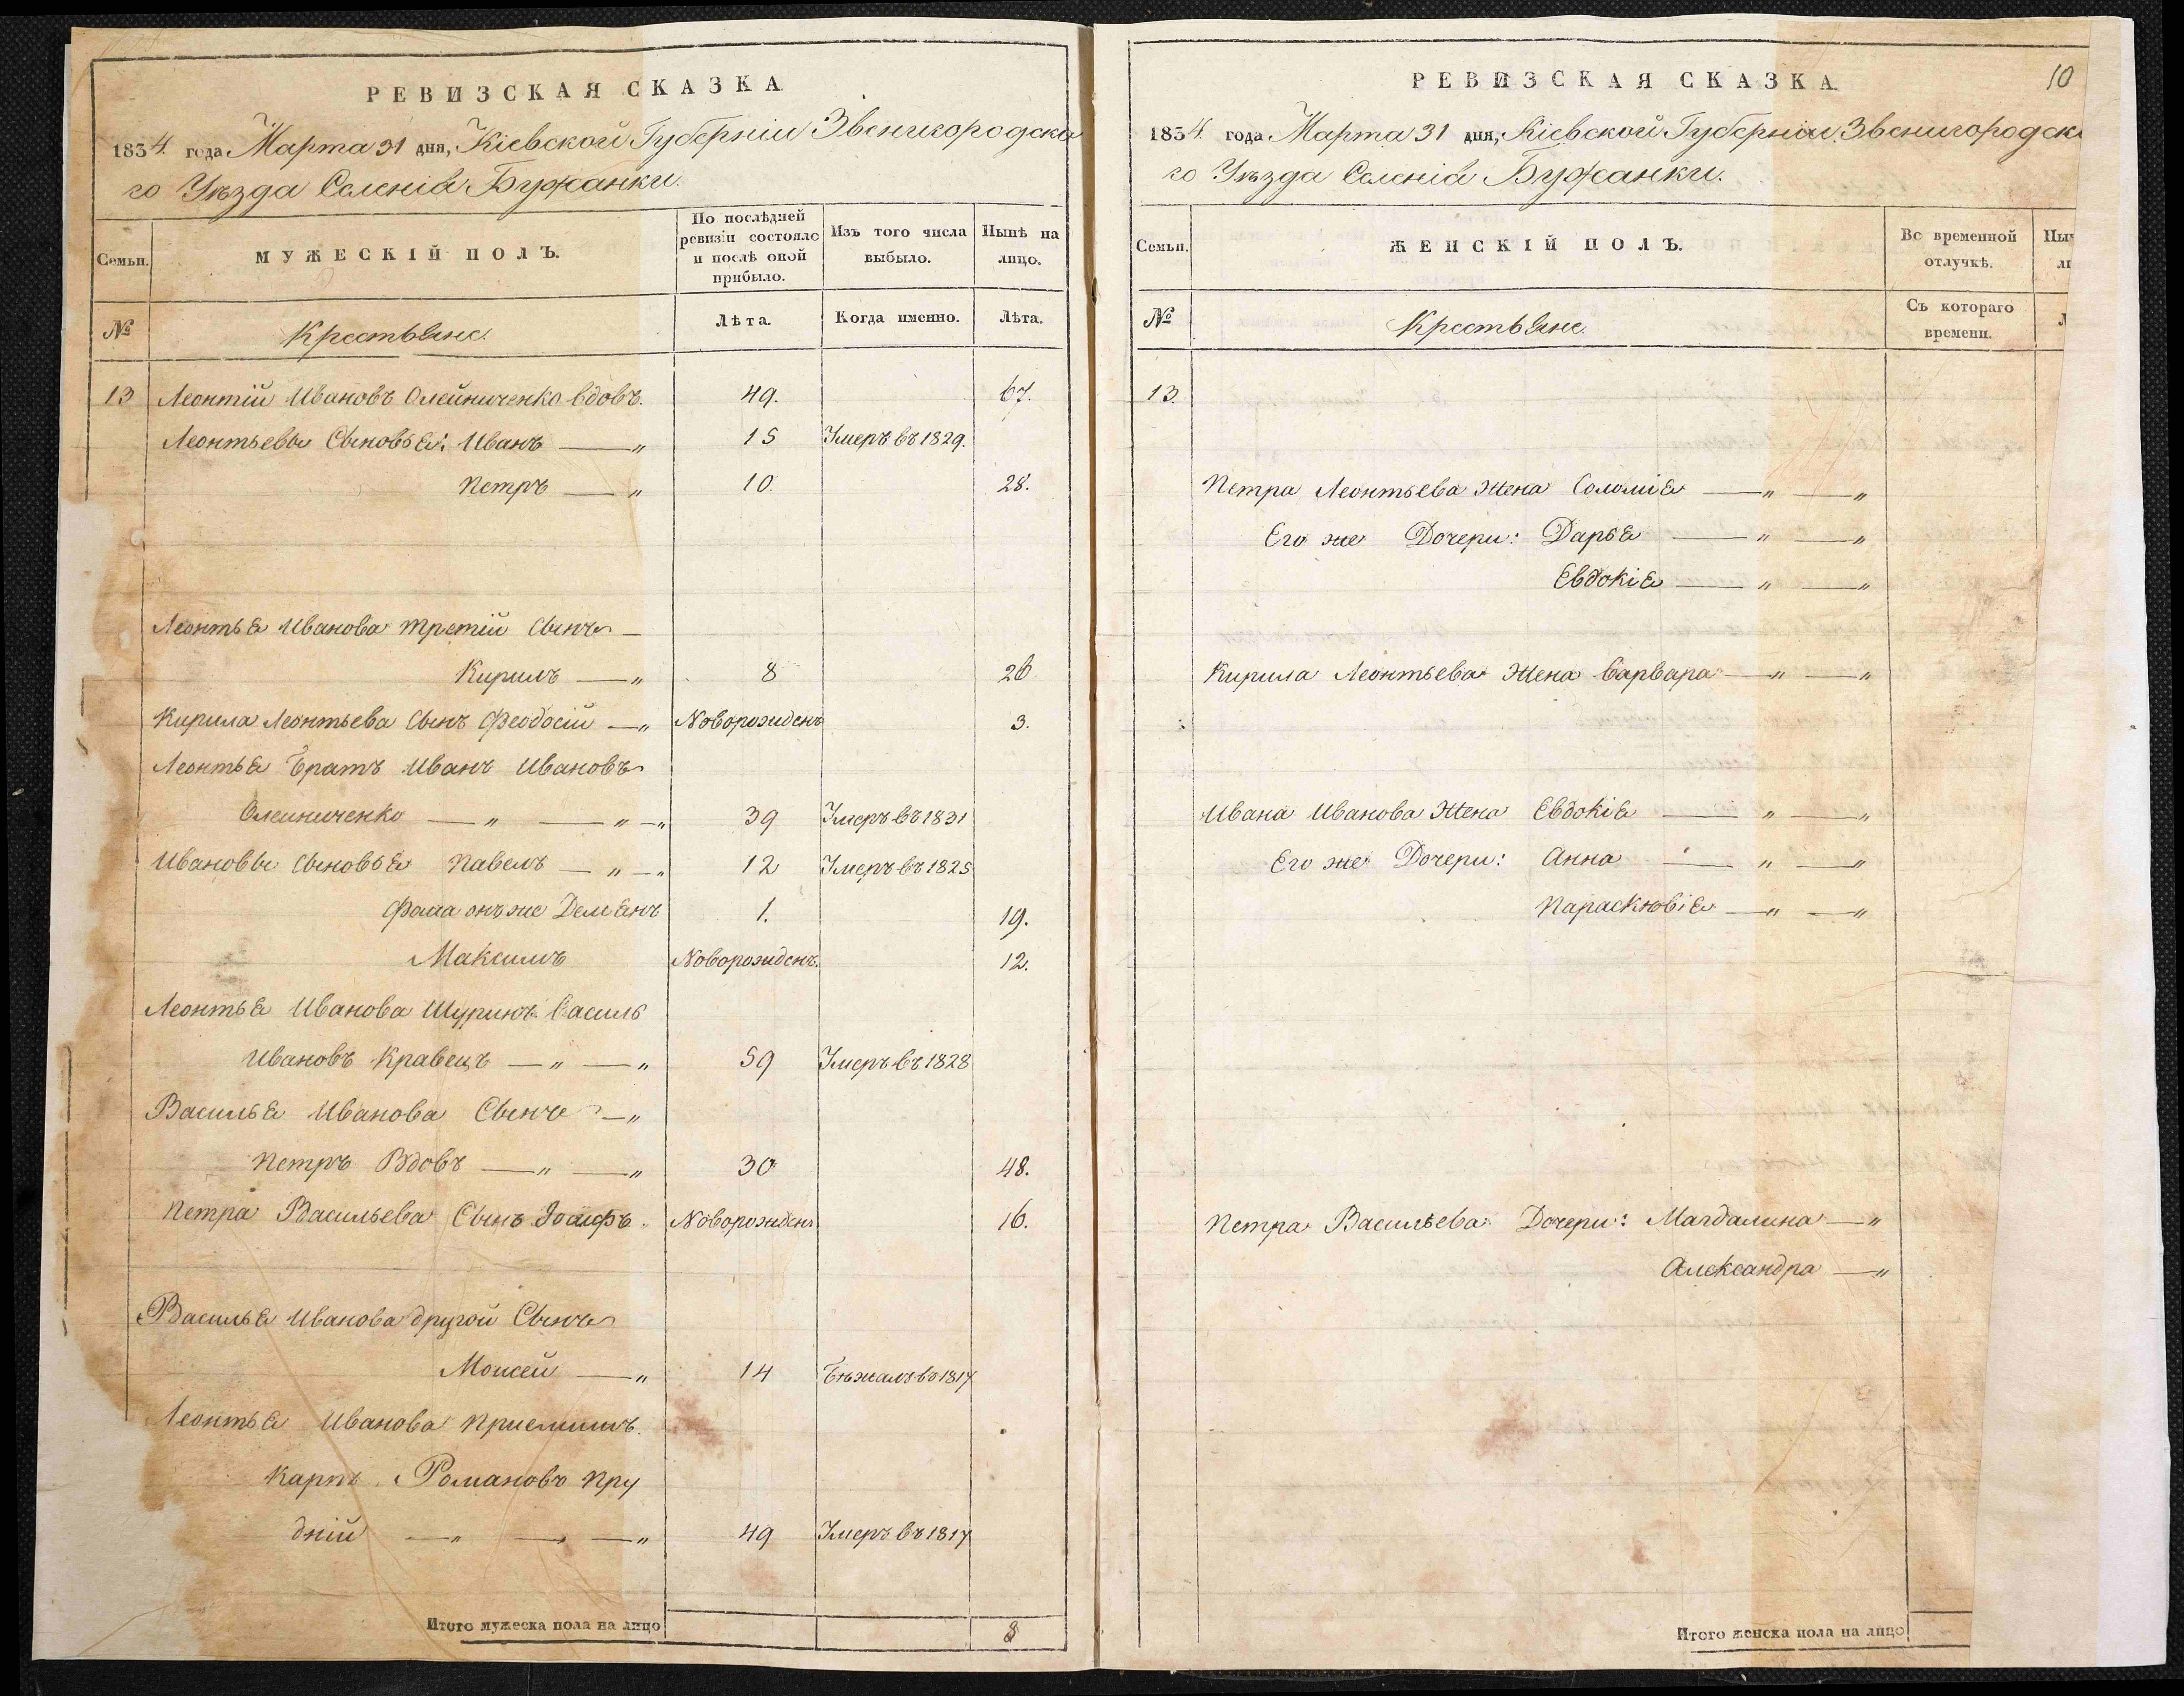 РЕВИЗСКАЯ СКАЗКА
1834 года Марта 31 дня, Кіевской Губерніи Звенигородска
го Уѣзда Селенія Бужанки.
Семьи. МУЖЕСКІЙ ПОЛЪ. По послѣдней ревизіи состояло и послѣ оной прибыло. Изъ того числа выбыло. Нынѣ на лицо.
№ Крестьяне. Лѣта. Когда именно. Лѣта.
13 Леонтій Ивановъ Олейниченко вдовъ. 49. 67.
Леонтьевы Сыновья: Иванъ — " 15 Умеръ въ 1829.
Петръ — " 10. 28.
Леонтья Иванова третій Сынъ —
Кирилъ — " 8 26
Кирила Леонтьева Сынъ Феодосій — " Новорожденъ 3.
Леонтья Братъ Иванъ Ивановъ
Олейниченко — " — " — " 39 Умеръ въ 1831
Ивановы Сыновья Павелъ — " — " 12 Умеръ въ 1825
Фома онъ же Демянъ 1. 19.
Максимъ Новорожденъ. 12.
Леонтья Иванова Шуринъ Василь
Ивановъ Кравецъ — " — " 59 Умеръ въ 1828
Василья Иванова Сынъ — "
Петръ Вдовъ — " — " 30 48.
Петра Васильева Сынъ Іоаифъ. Новорожденъ 16.
Василья Иванова другой Сынъ
Моисей — " 14 Бѣжалъ въ 1817
Леонтья Иванова Приемышъ.
Карпъ Романовъ Пру
дній — " — " — " 49 Умеръ въ 1817
Итого мужеска пола на лицо 8
РЕВИЗСКАЯ СКАЗКА. 10
1834 года Марта 31 дня, Кіевской Губерніи Звенигородск
го Уѣзда Селенія Бужанки.
Семьи. ЖЕНСКІЙ ПОЛЪ. Во временной отлучкѣ.
№ Крестьяне. Съ котораго времени.
13.
Петра Леонтьева Жена Соломія — " — "
Его же Дочери: Дарья — " — "
Евдокія — " — "
Кирила Леонтьева Жена Варвара — " — "
Ивана Иванова Жена Евдокія — " — "
Его же Дочери: Анна — " — "
Параскѣвія — " — "
Петра Васильева Дочери: Магдалина — "
Александра — "
Итого женска пола на лицо